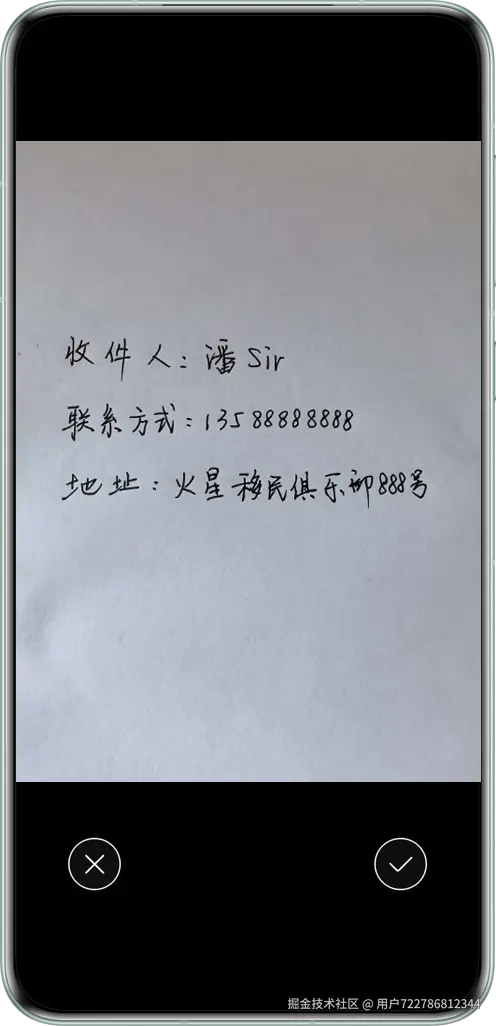 收件人：潘Sir
联系方式：13588888888
地址：火星移民俱乐部888号
掘金技术社区 @ 用户722786812344